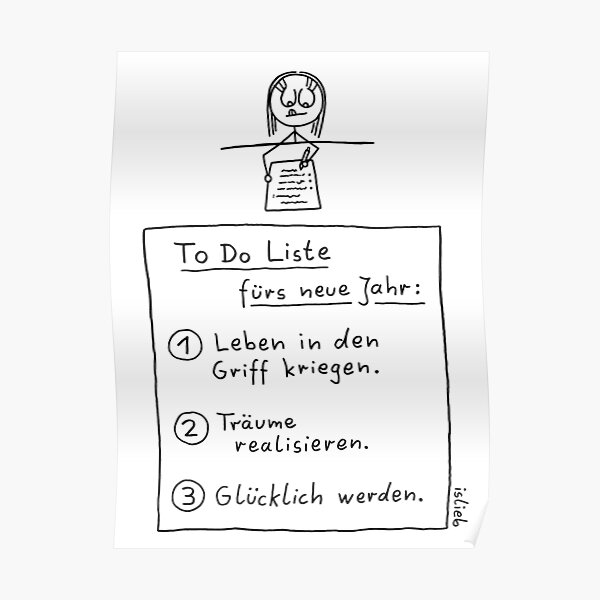 To Do Liste
fürs neue Jahr:
1 Leben in den
Griff kriegen.
2 Träume
realisieren.
3 Glücklich werden.
islieb